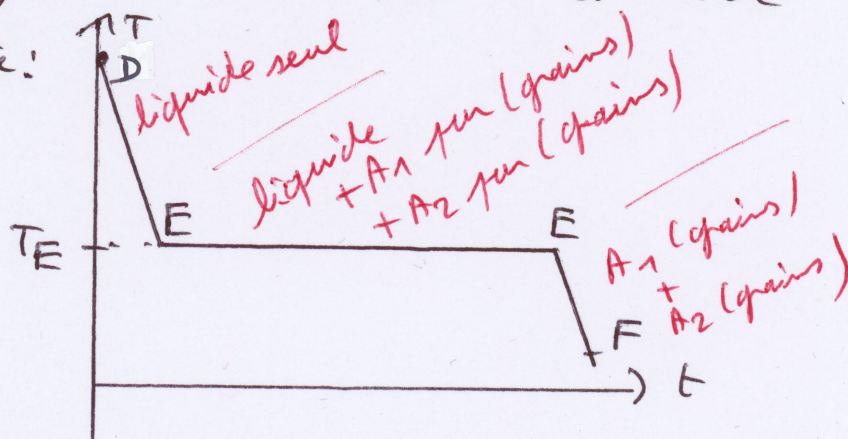 T
D
liquide seul
liquide
+ A1 pur (grains)
+ A2 pur (grains)
E
E
TE
A1 (grains)
+
A2 (grains)
F
t